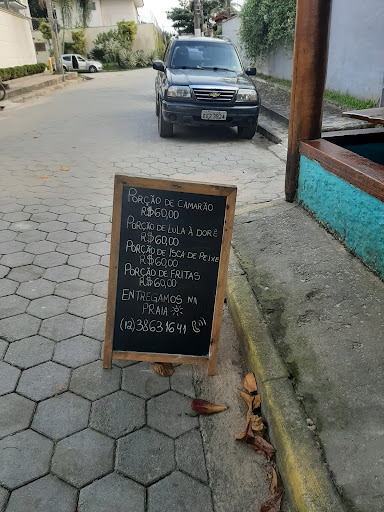 PORÇÃO DE CAMARÃO
R$60,00
PORÇÃO DE LULA À DORÊ
R$60,00
PORÇÃO DE ISCA DE PEIXE
R$60,00
PORÇÃO DE FRITAS
R$60,00
ENTREGAMOS NA
PRAIA
(12) 38631641